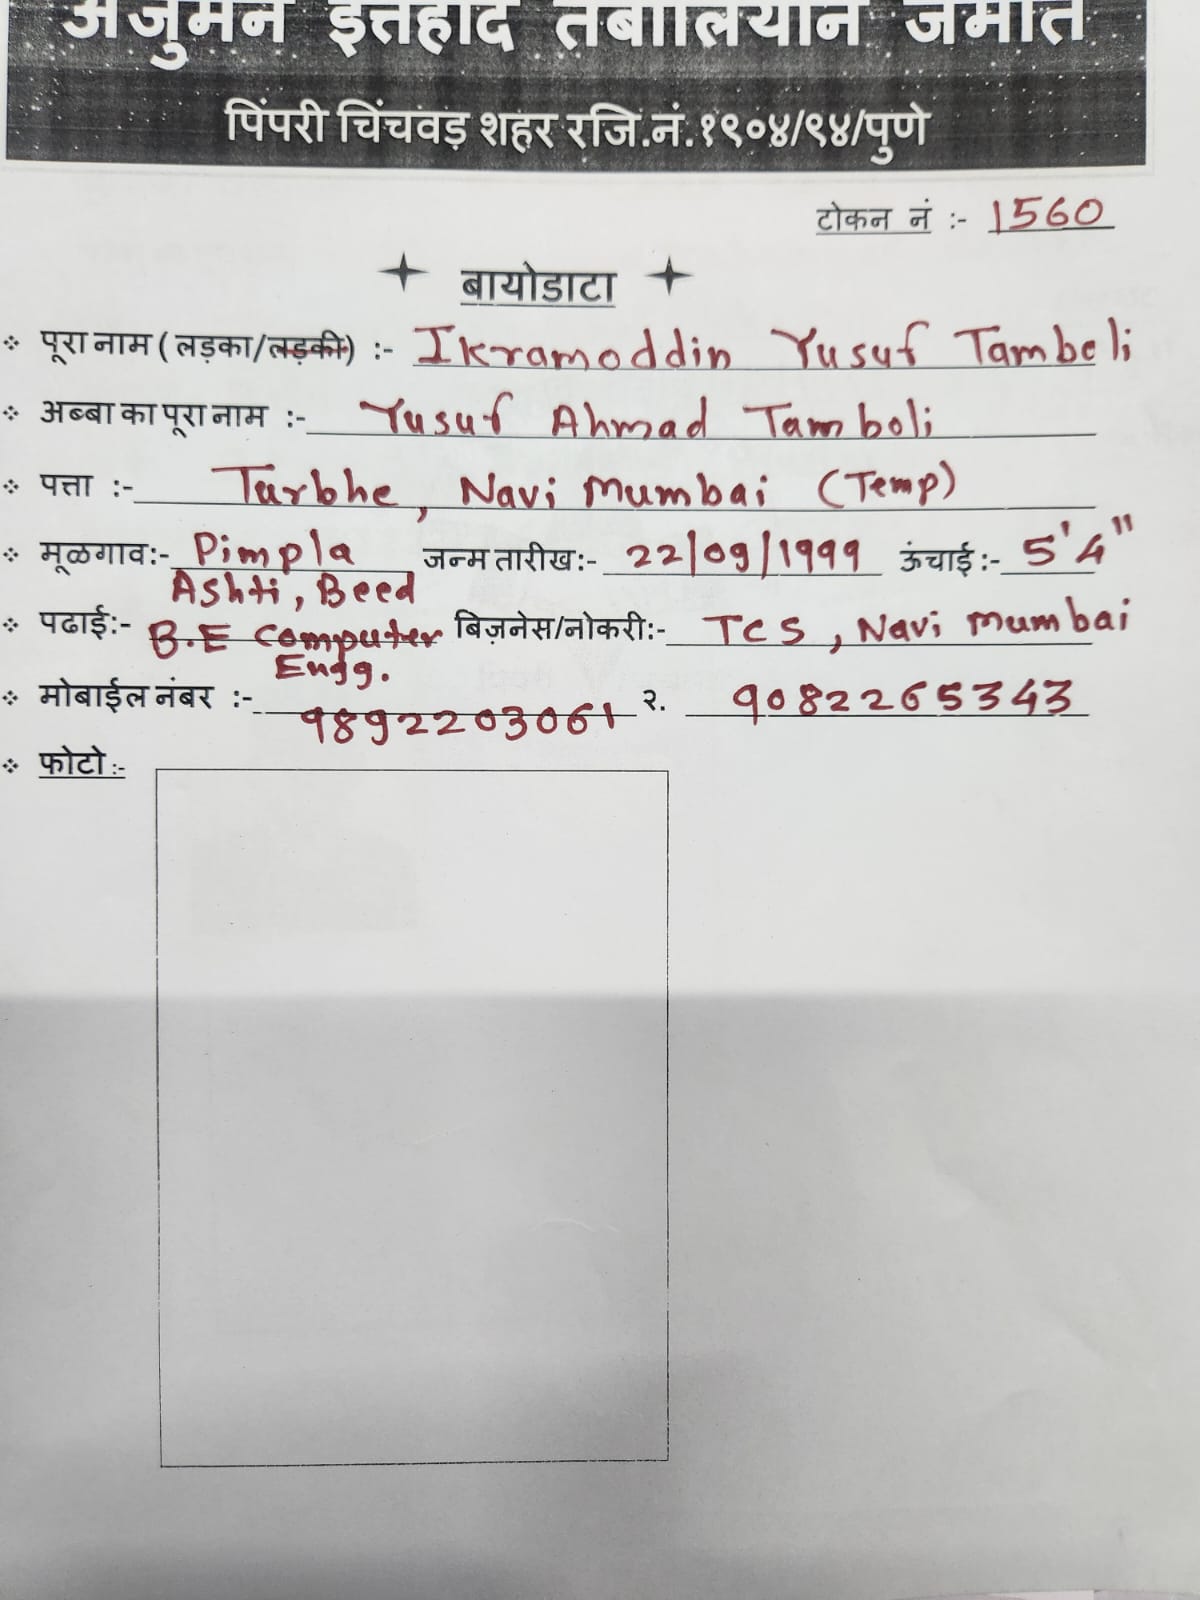 अंजुमन इत्तेहाद तंबोलियान जमात
पिंपरी चिंचवड़ शहर रजि.नं.१९०४/९४/पुणे
टोकन नं :- 1560
बायोडाटा
पूरा नाम ( लड़का/लड़की) :- Ikramoddin Yusuf Tamboli
अब्बा का पूरा नाम :- Yusuf Ahmad Tamboli
पत्ता :- Turbhe, Navi Mumbai (Temp)
मूळगाव:- Pimpla जन्म तारीख:- 22/09/1999 ऊंचाई:- 5'4"
Ashti, Beed
पढाई:- B.E Computer बिज़नेस/नोकरी:- TCS, Navi Mumbai
Engg.
मोबाईल नंबर :- 9892203061 २. 9082265343
फोटो:-